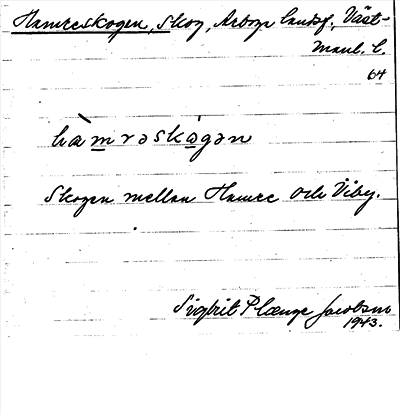 Hamreskogen, Skog, Arboga landsf., Väst-
manl. l.
64
hàmrəskògən
Skogen mellan Hamre och Viby.
Sigbrit Plænge Jacobson
1943.